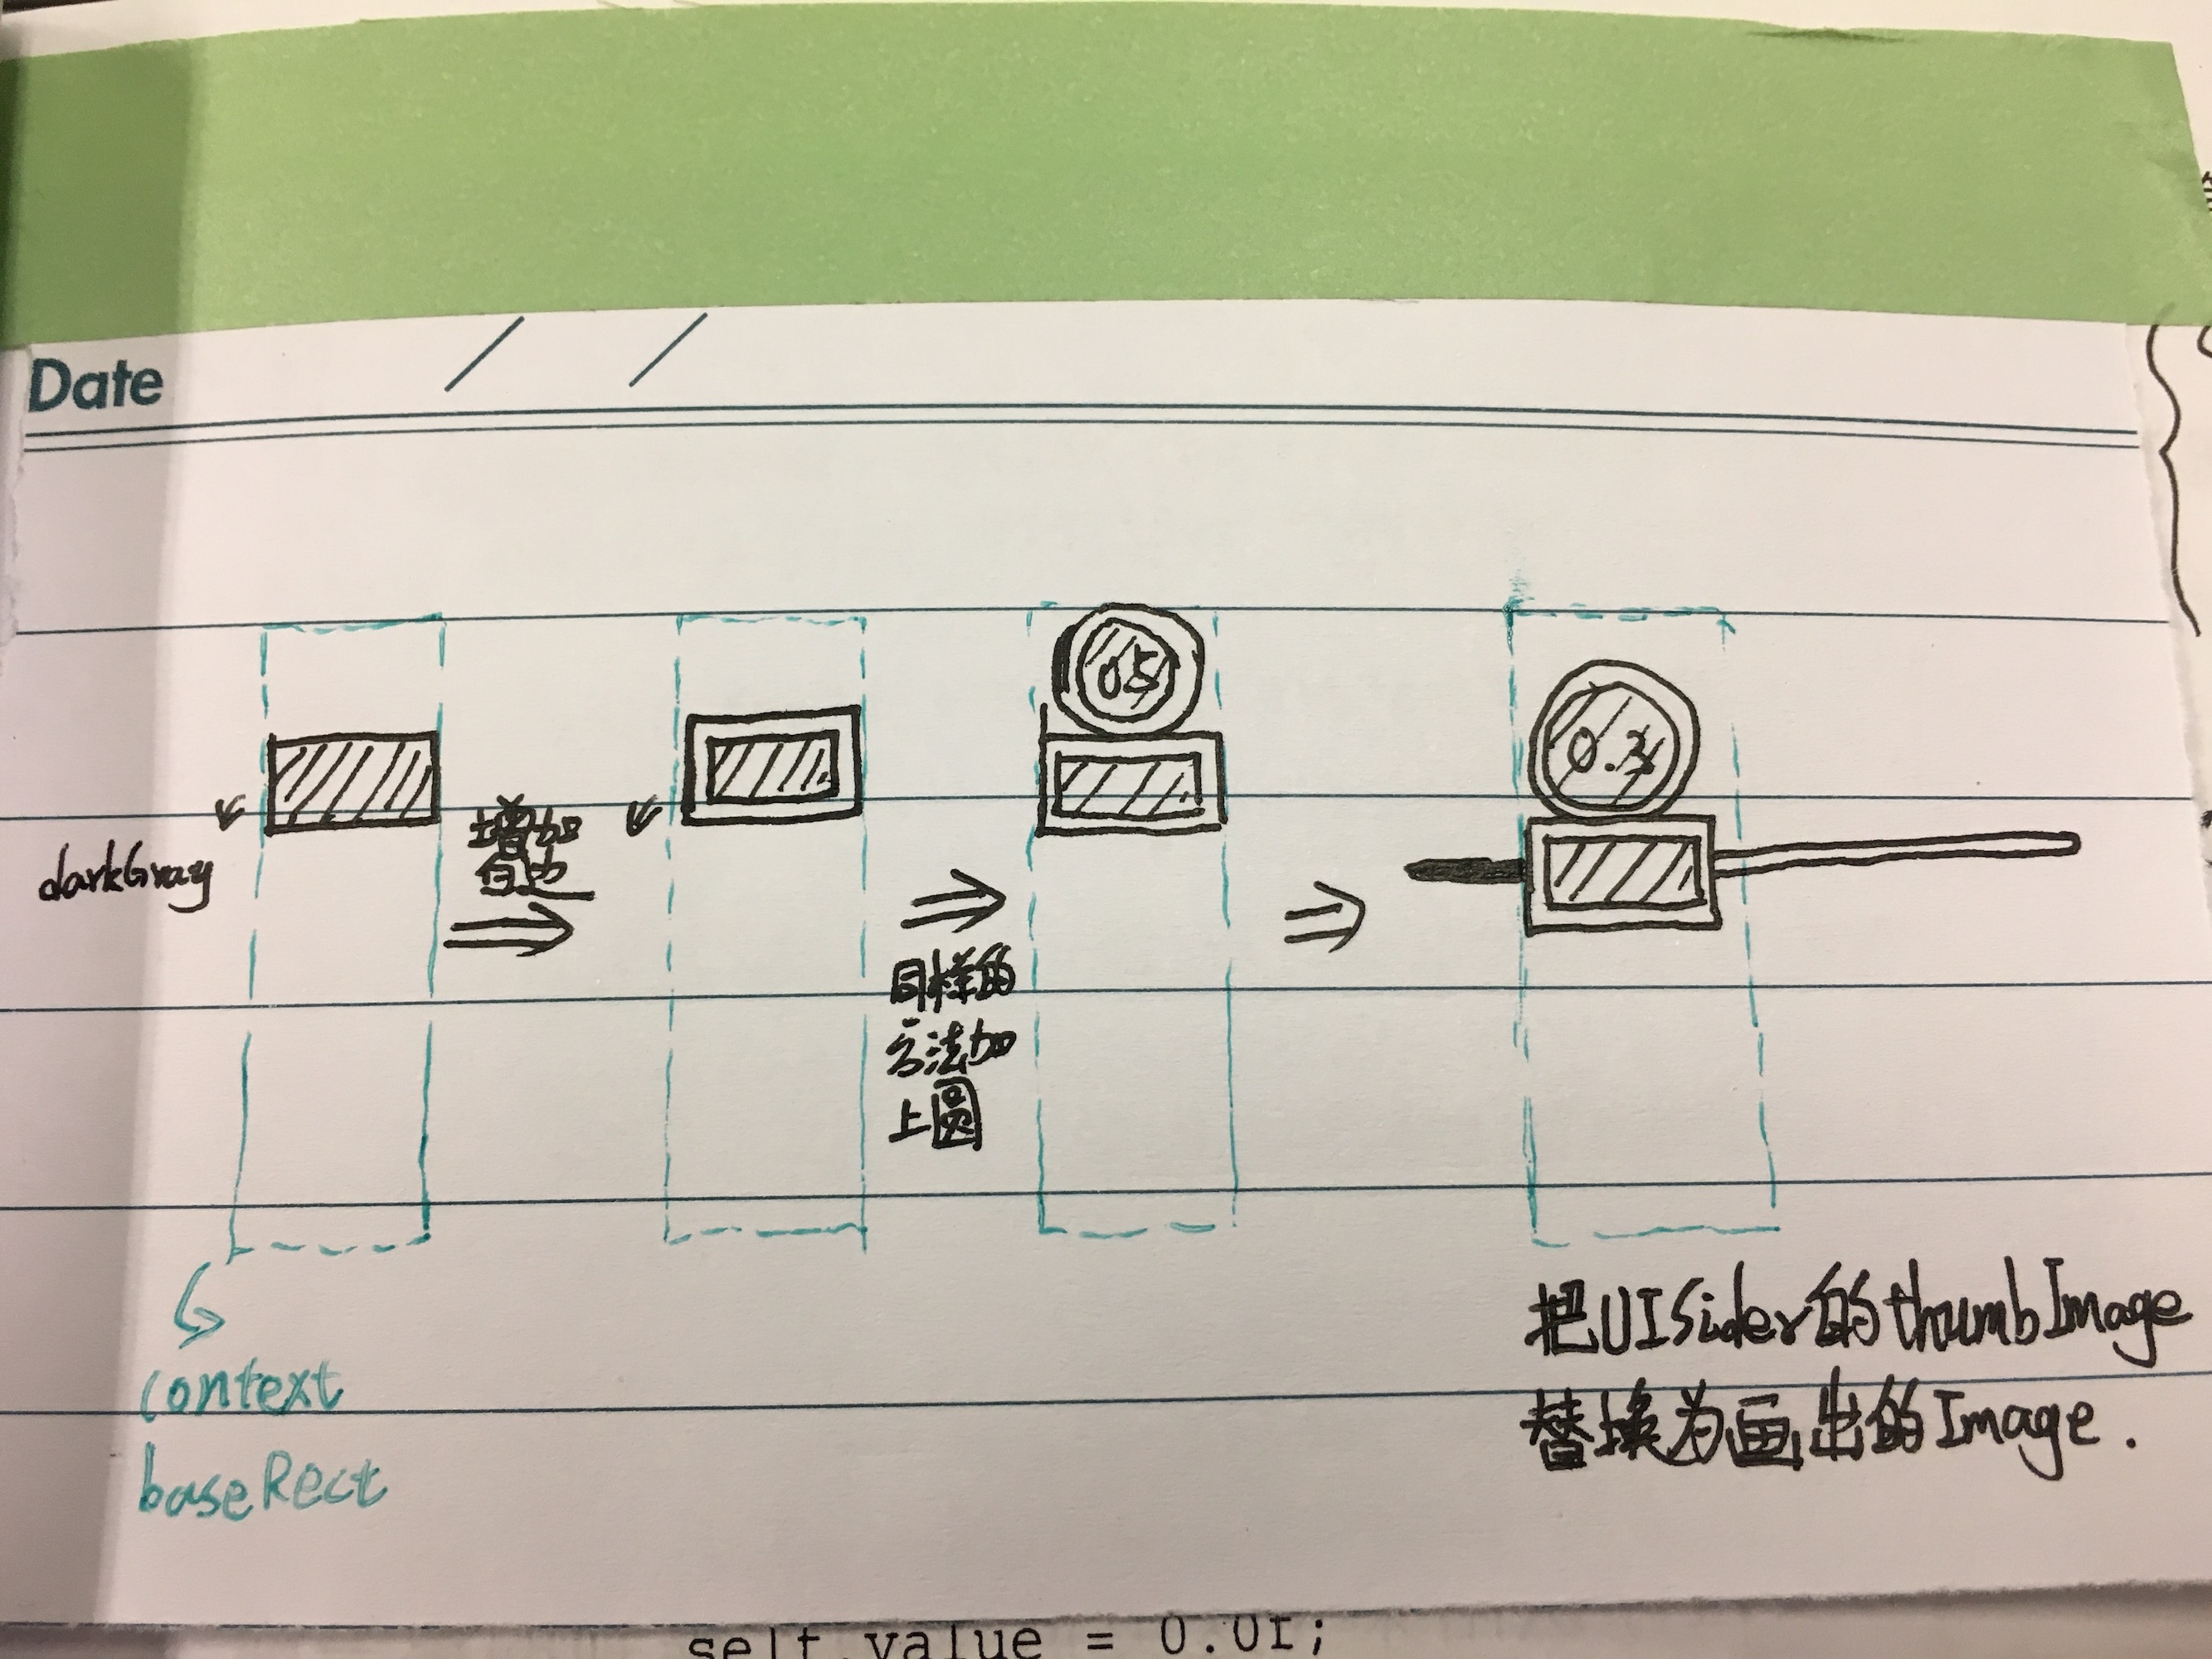 Date / /
darkGray
增加
白边
05
同样的
方法加
上圆
0.3
context
baseRect
把UISider的thumbImage
替换为画出的Image.
self.value = 0.0f;